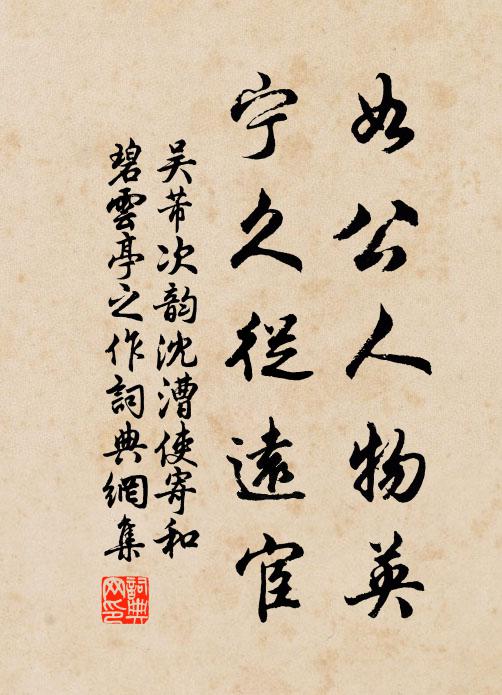 如公人物英
宁久從遠宦
吴芾次韵沈漕使寄和
碧雲亭之作詞典網集
詞典
网印